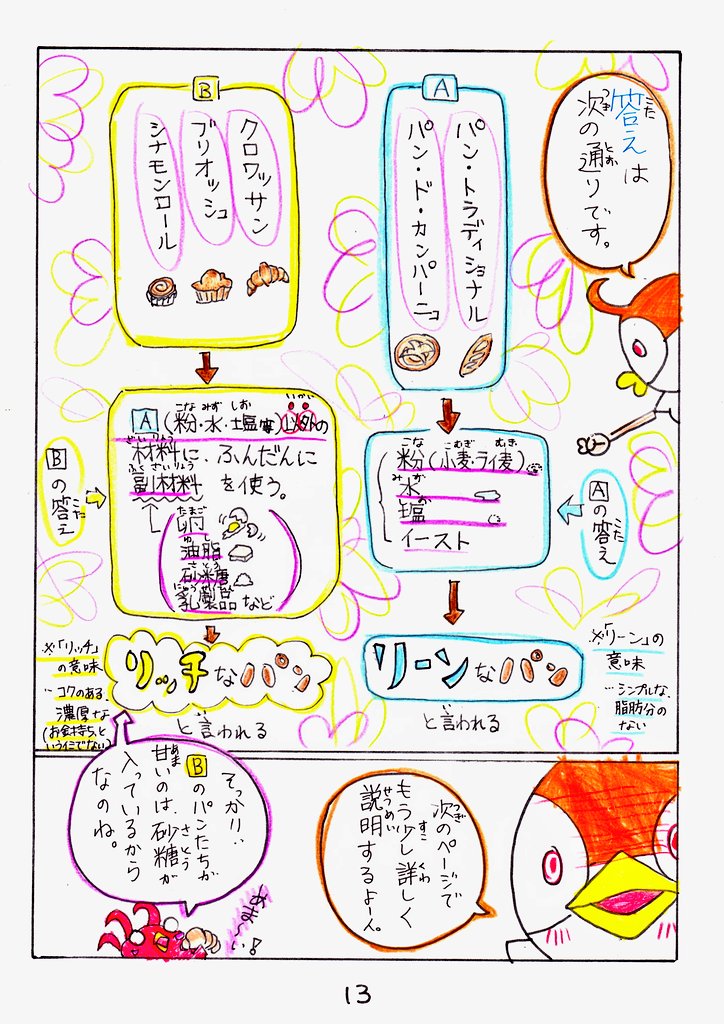 答えは
次の通りです。
A
パン・トラディショナル
パン・ド・カンパーニュ
B
クロワッサン
ブリオッシュ
シナモンロール
Aの答え
粉(小麦・ライ麦)
水
塩
イースト
Bの答え
A(粉・水・塩等)以外の
材料に、ふんだんに
副材料を使う。
卵
油脂
砂糖
乳製品など
リーンなパン
と言われる
※「リーン」の
意味
…シンプルな、
脂肪分の
ない
リッチなパン
と言われる
※「リッチ」
の意味
…コクのある、
濃厚な
(お金持ち、と
いうイミでない)
次のページで
もう少し詳しく
説明するよーん。
そっかり…
Bのパンたちが
甘いのは、砂糖が
入っているから
なのね。
あま〜い!
13